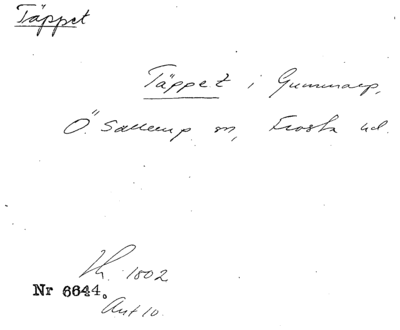 Täppet
Täppet i Gummarp,
Ö. Sallerup sn, Frosta hd.
Th. 1802
Nr 6644.
Ant 10.